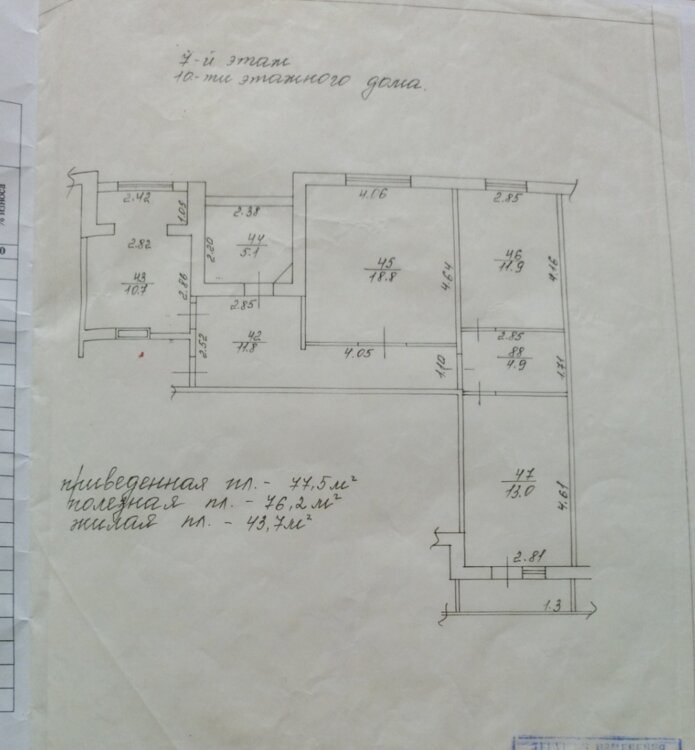 % износа
7-й этаж
10-ти этажного дома.
2.42
1.05
2.38
4.06
2.85
2.82
2.20
44
5.1
45
18.8
46
11.9
43
10.7
2.86
4.64
4.16
2.85
2.52
42
11.8
4.05
1.10
2.85
88
4.9
1.71
приведенная пл. - 77,5 м²
полезная пл. - 76,2 м²
жилая пл. - 43,7 м²
47
13.0
4.61
2.81
1.3